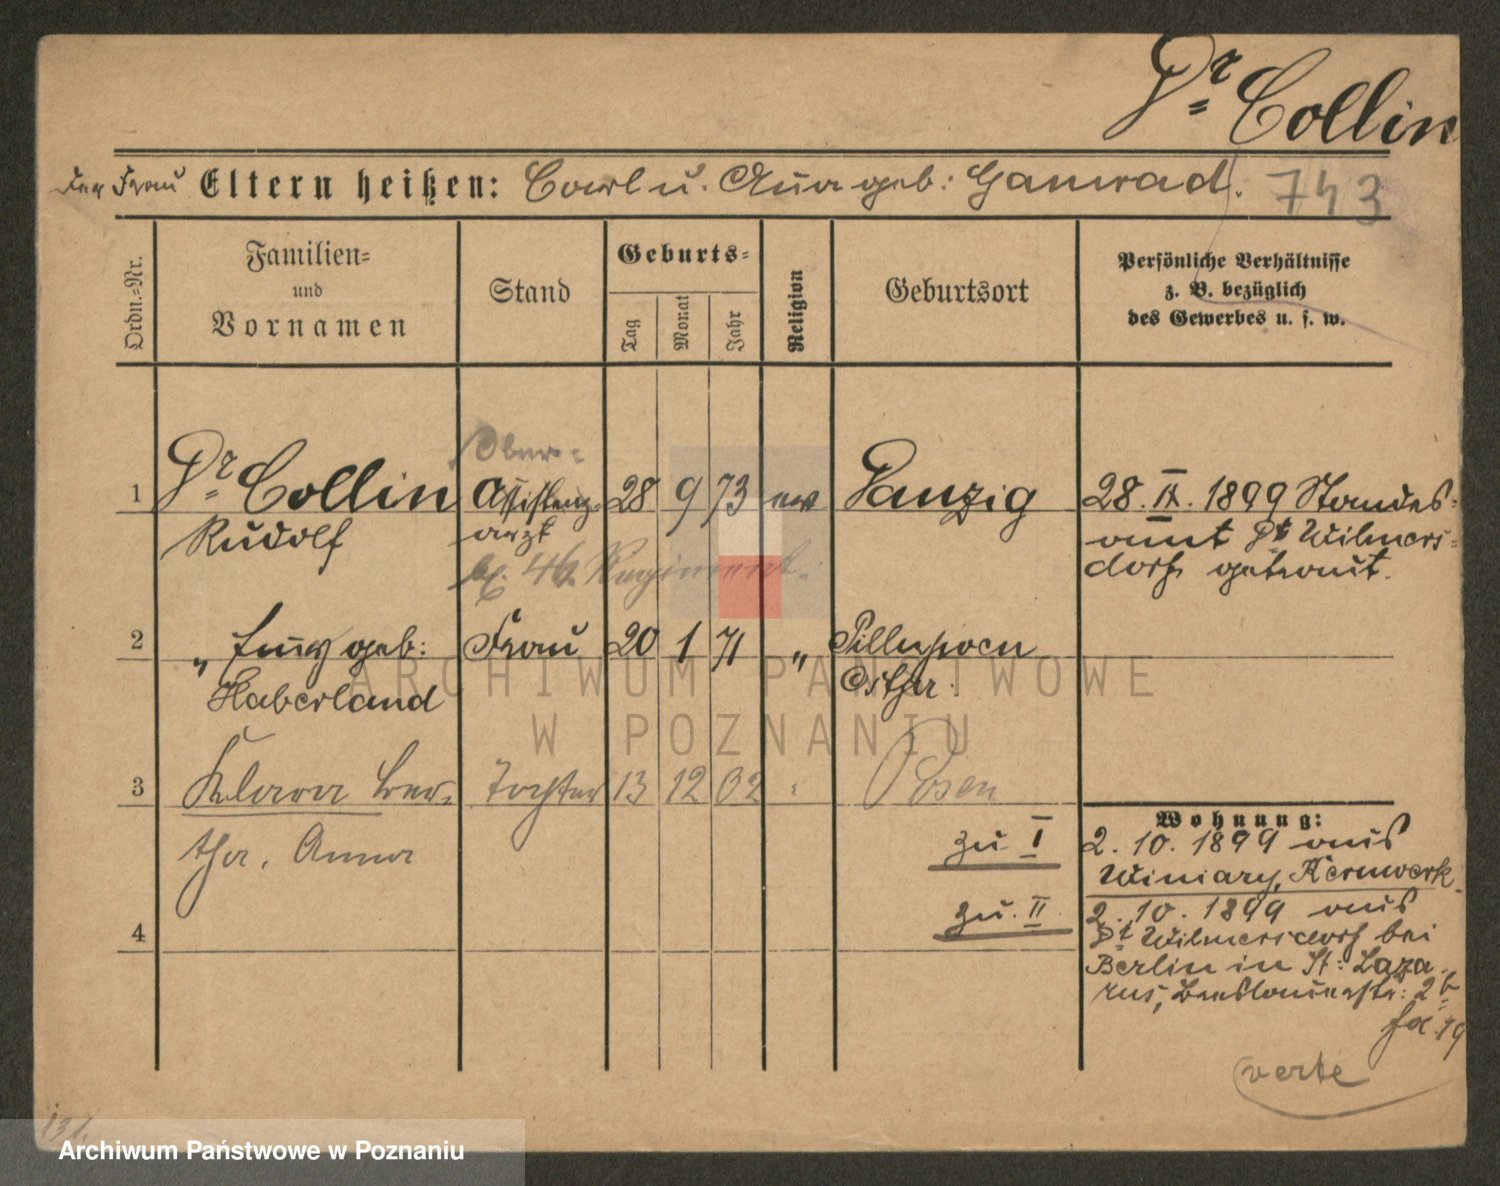 Dr Collin
Der Frau Eltern heißen: Carl u. Anna geb: Gamrad. 743
Ordn.=Nr.
Familien=
und
Vornamen
Stand
Geburts=
Tag
Monat
Jahr
Religion
Geburtsort
Persönliche Verhältnisse
z. B. bezüglich
des Gewerbes u. s. w.
Ober=
1 Dr Collin Assistenz= 28 9 73 ev Danzig 28. IX. 1899 Standes=
Rudolf arzt amt Dt Wilmers=
b. 46. Regiment. dorf getraut.
2 " Emy geb: Frau 20 1 71 " Pillupönen
Haberland Ostpr.
3 Klara Ber= Tochter 13 12 02 Posen
tha, Anna
Wohnung:
zu I 2. 10. 1899 aus
Winiary, Kernwerk
4 zu II 2. 10. 1899 aus
Dt Wilmersdorf bei
Berlin in St: Laza=
rus, 2b
19
verte
131
ARCHIWUM PAŃSTWOWE
W POZNANIU
Archiwum Państwowe w Poznaniu